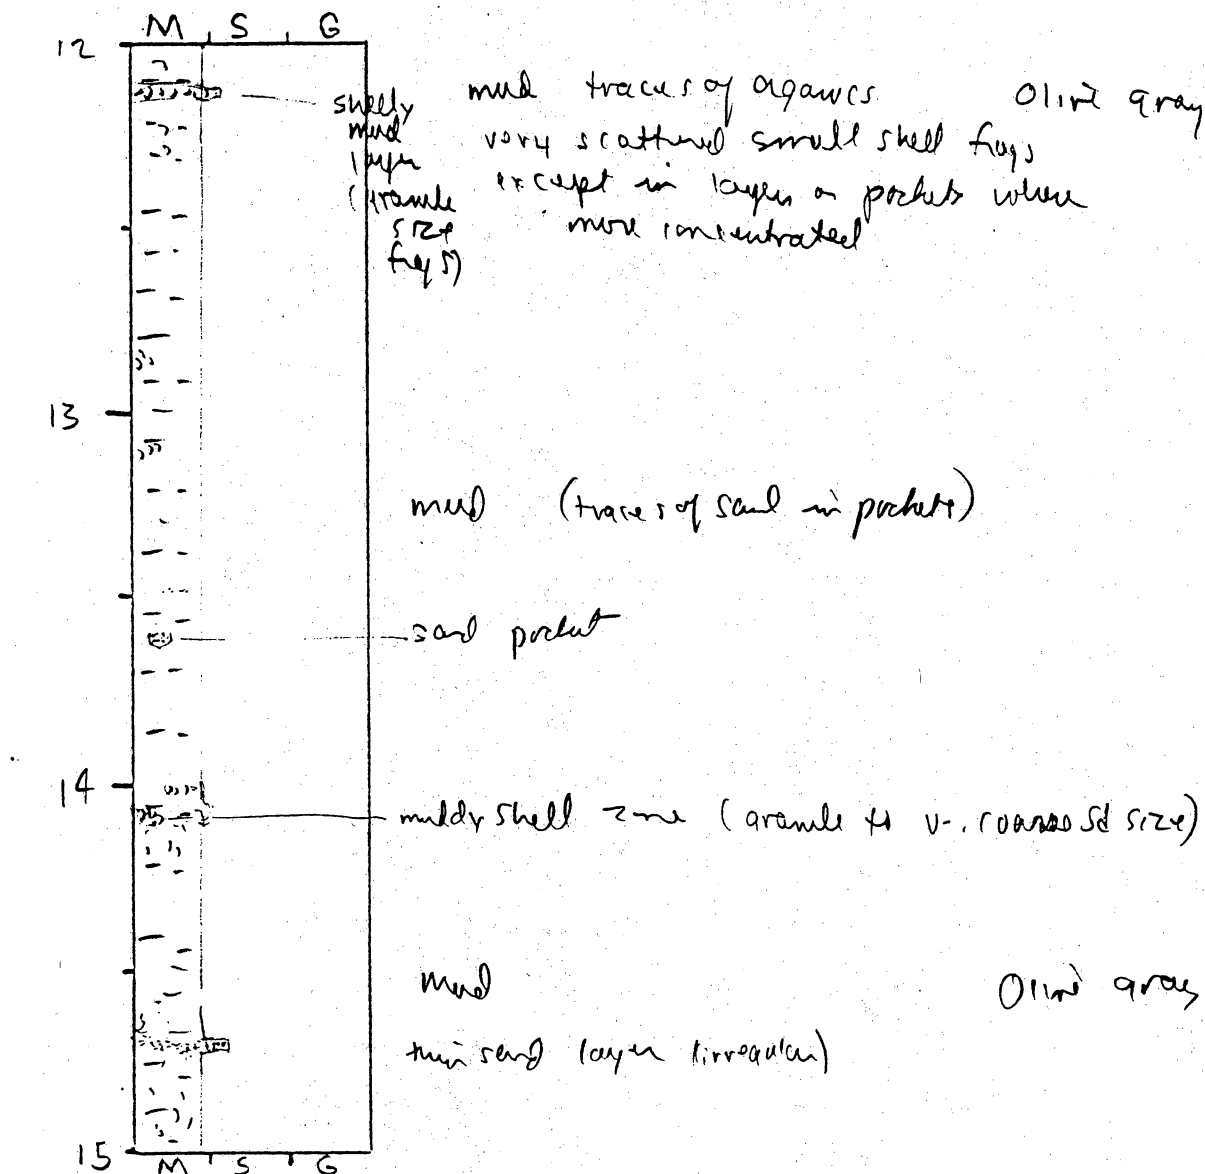 M S G
12
mud traces of organics Olive gray
shelly
mud
layer
(granule
size
frags)
very scattered small shell frags
except in layers or pockets where
more concentrated
13
mud (traces of sand in pockets)
sand pocket
14
muddy shell zone (granule to v. coarse sd size)
mud Olive gray
thin sand layer (irregular)
15
M S G